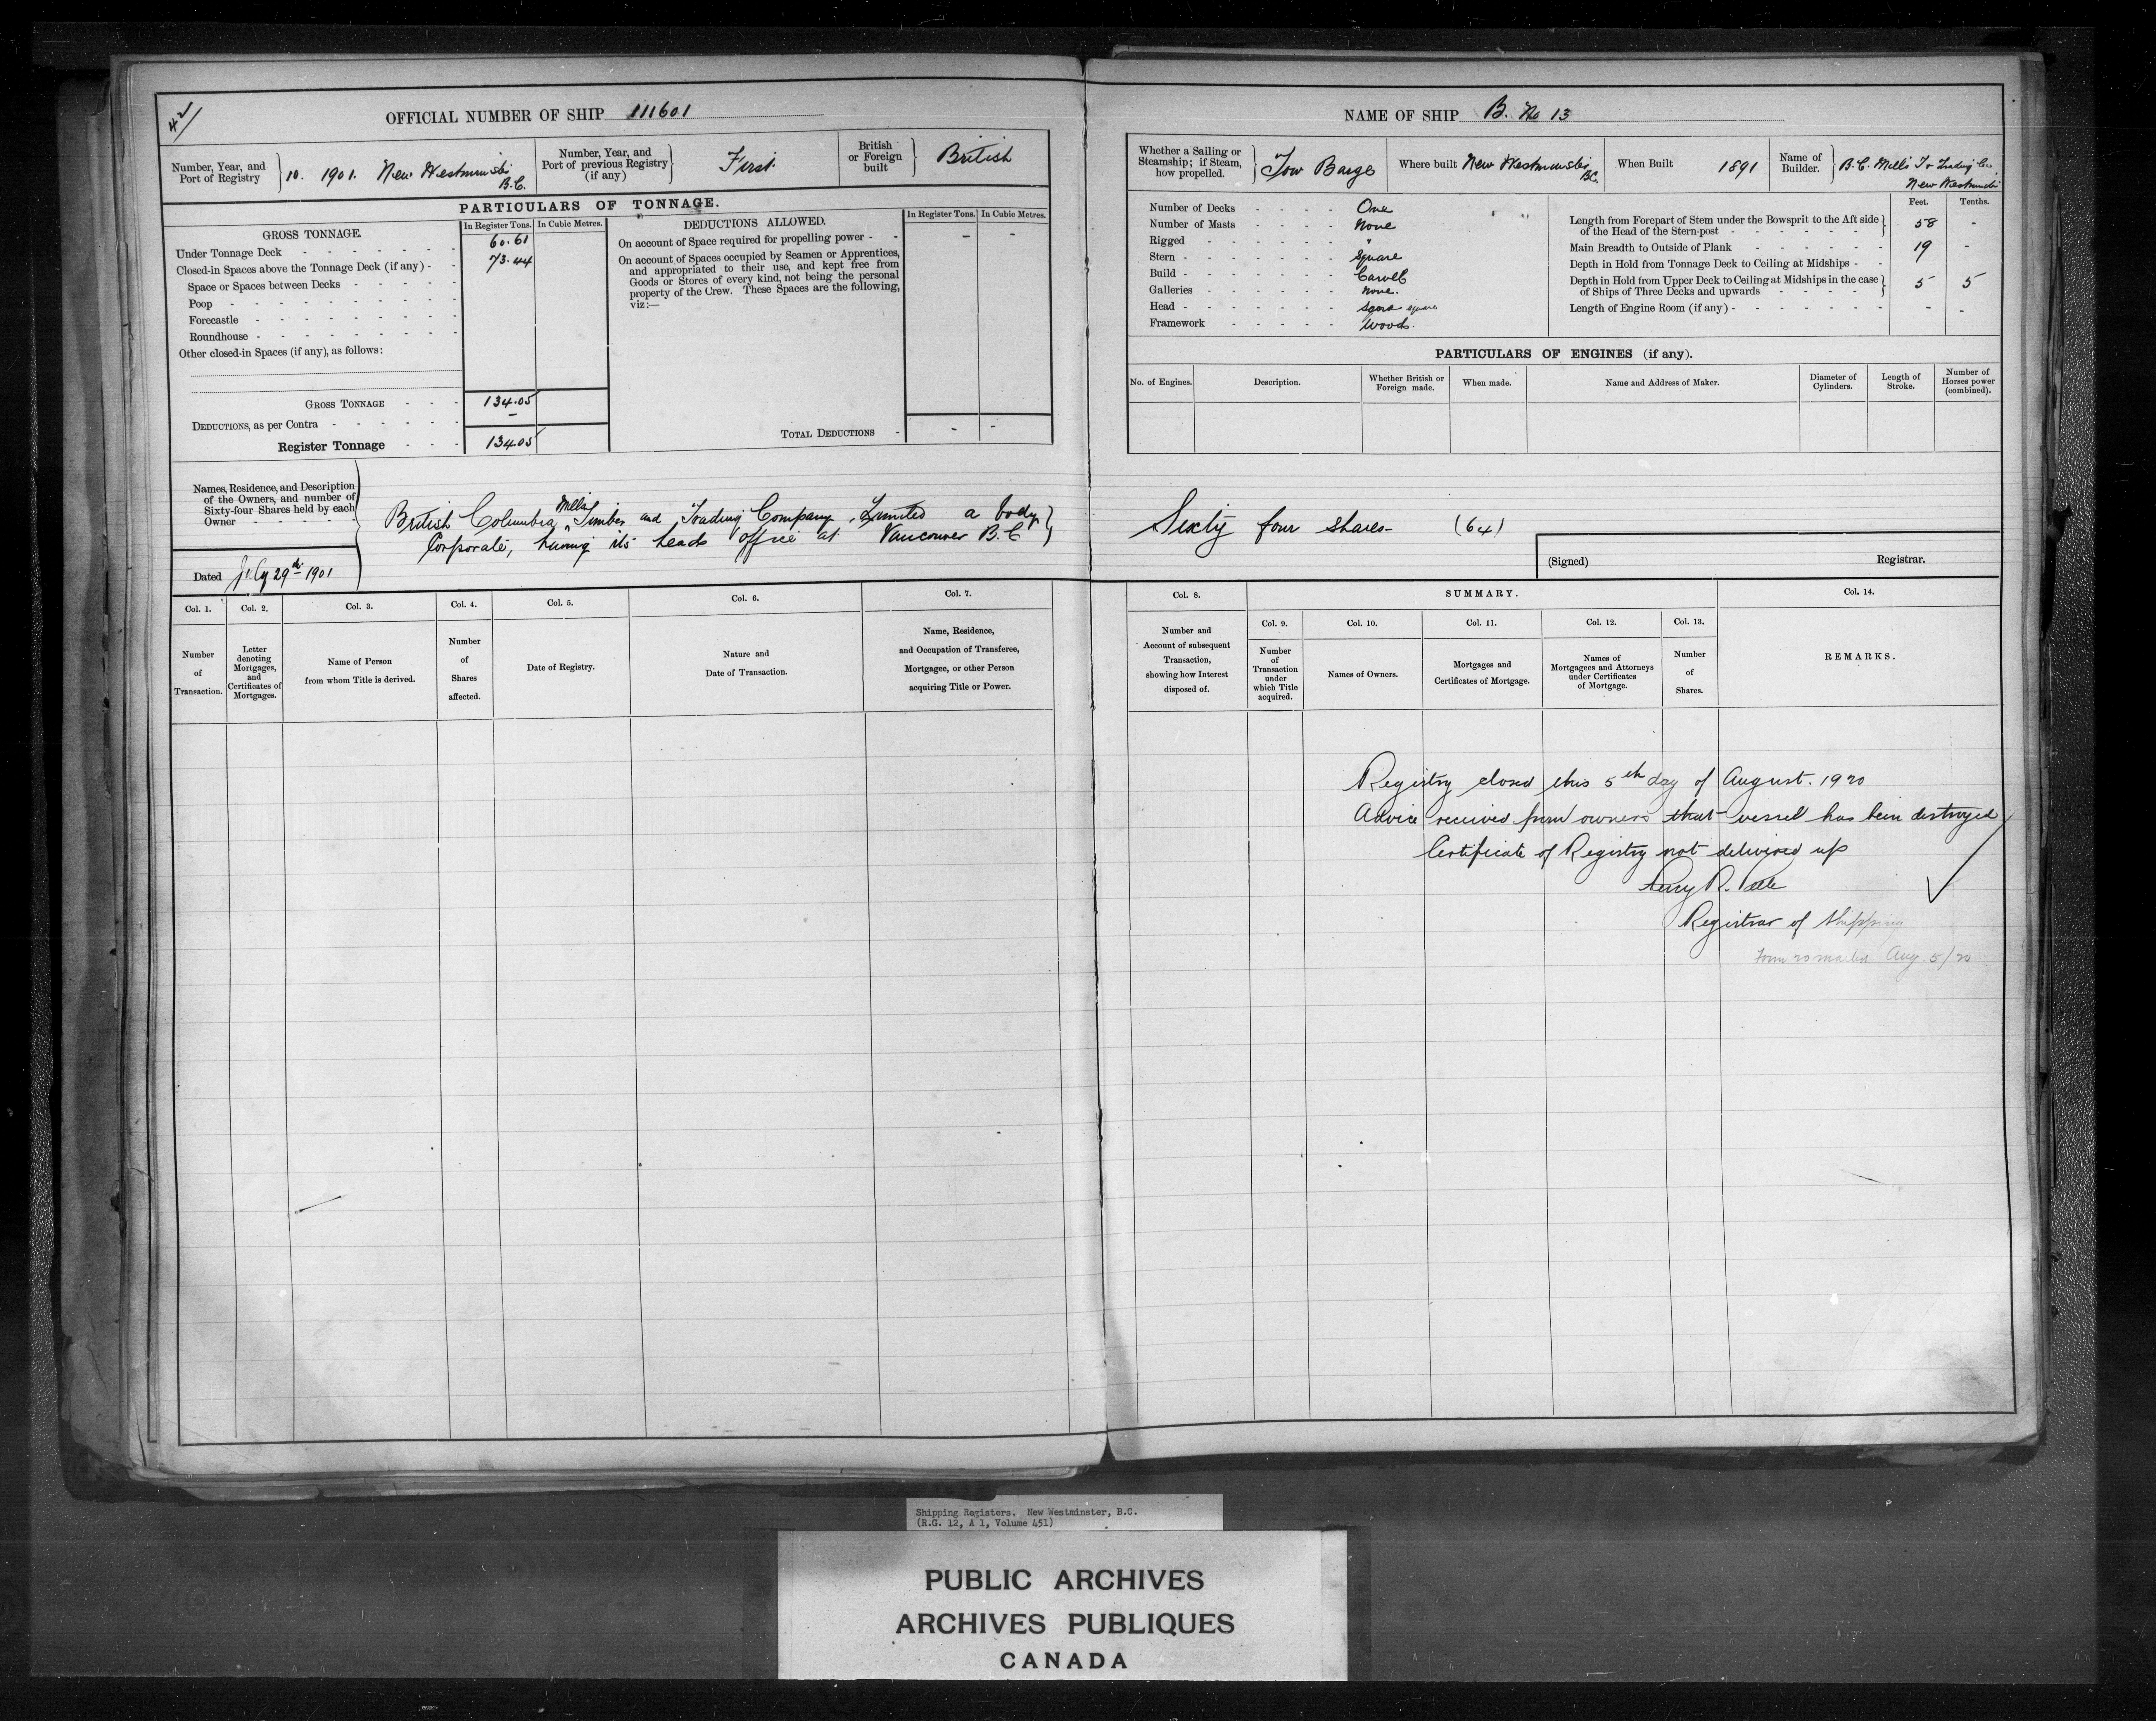 42/
OFFICIAL NUMBER OF SHIP 111601
Number, Year, and Port of Registry } 10. 1901. New Westminster B.C.
Number, Year, and Port of previous Registry (if any) } First.
British or Foreign built } British
PARTICULARS OF TONNAGE.
GROSS TONNAGE.
In Register Tons. In Cubic Metres.
Under Tonnage Deck - 60.61
Closed-in Spaces above the Tonnage Deck (if any) - 73.44
Space or Spaces between Decks -
Poop -
Forecastle -
Roundhouse -
Other closed-in Spaces (if any), as follows:
GROSS TONNAGE - 134.05
DEDUCTIONS, as per Contra - -
Register Tonnage - 134.05
DEDUCTIONS ALLOWED.
In Register Tons. In Cubic Metres.
On account of Space required for propelling power - - -
On account of Spaces occupied by Seamen or Apprentices,
and appropriated to their use, and kept free from
Goods or Stores of every kind, not being the personal
property of the Crew. These Spaces are the following,
viz:—
TOTAL DEDUCTIONS - - -
Names, Residence, and Description
of the Owners, and number of
Sixty-four Shares held by each
Owner
British Columbia Mills Timber and Trading Company, Limited a body
Corporate, having its head office at Vancouver B.C
Dated July 29th 1901
Col. 1. Number of Transaction.
Col. 2. Letter denoting Mortgages, and Certificates of Mortgages.
Col. 3. Name of Person from whom Title is derived.
Col. 4. Number of Shares affected.
Col. 5. Date of Registry.
Col. 6. Nature and Date of Transaction.
Col. 7. Name, Residence, and Occupation of Transferee, Mortgagee, or other Person acquiring Title or Power.
NAME OF SHIP B. No 13
Whether a Sailing or Steamship; if Steam, how propelled. } Tow Barge
Where built New Westminster BC.
When Built 1891
Name of Builder. } B.C. Mills T & Trading Co., New Westminster
Number of Decks - One
Number of Masts - None
Rigged - "
Stern - Square
Build - Carvel
Galleries - None.
Head - square
Framework - Wood.
Feet. Tenths.
Length from Forepart of Stem under the Bowsprit to the Aft side
of the Head of the Stern-post - 58 -
Main Breadth to Outside of Plank - 19 -
Depth in Hold from Tonnage Deck to Ceiling at Midships -
Depth in Hold from Upper Deck to Ceiling at Midships in the case
of Ships of Three Decks and upwards - 5 5
Length of Engine Room (if any) - - -
PARTICULARS OF ENGINES (if any).
No. of Engines. Description. Whether British or Foreign made. When made. Name and Address of Maker. Diameter of Cylinders. Length of Stroke. Number of Horses power (combined).
Sixty four shares- (64)
(Signed) Registrar.
Col. 8. Number and Account of subsequent Transaction, showing how Interest disposed of.
SUMMARY.
Col. 9. Number of Transaction under which Title acquired.
Col. 10. Names of Owners.
Col. 11. Mortgages and Certificates of Mortgage.
Col. 12. Names of Mortgagees and Attorneys under Certificates of Mortgage.
Col. 13. Number of Shares.
Col. 14. REMARKS.
Registry closed this 5th day of August. 1920
Advice received from owners that vessel has been destroyed
Certificate of Registry not delivered up
Registrar of Shipping
Form 20 mailed Aug. 5/20
Shipping Registers. New Westminster, B.C.
(R.G. 12, A 1, Volume 451)
PUBLIC ARCHIVES
ARCHIVES PUBLIQUES
CANADA